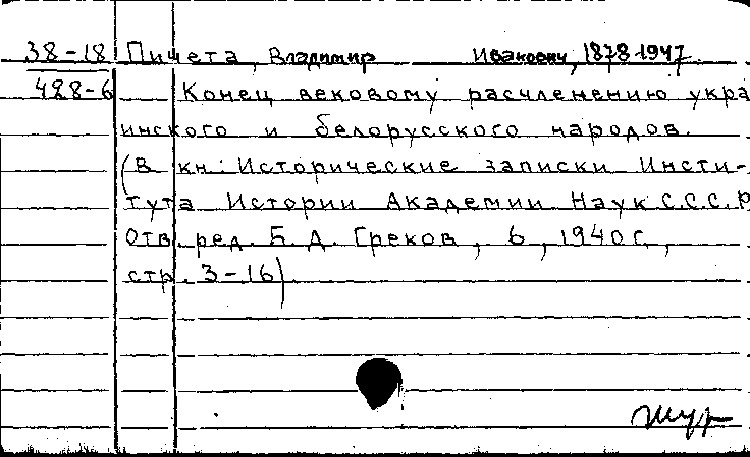 38-18 Пичета, Владимир Иванович, 1878-1947.
428-6 Конец вековому расчленению укра
инского и белорусского народов.
(В кн: Исторические записки Инсти-
тута Истории Академии Наук С.С.С.Р
Отв. ред. Б. Д. Греков, 6, 1940г.,
стр. 3-16)
жур